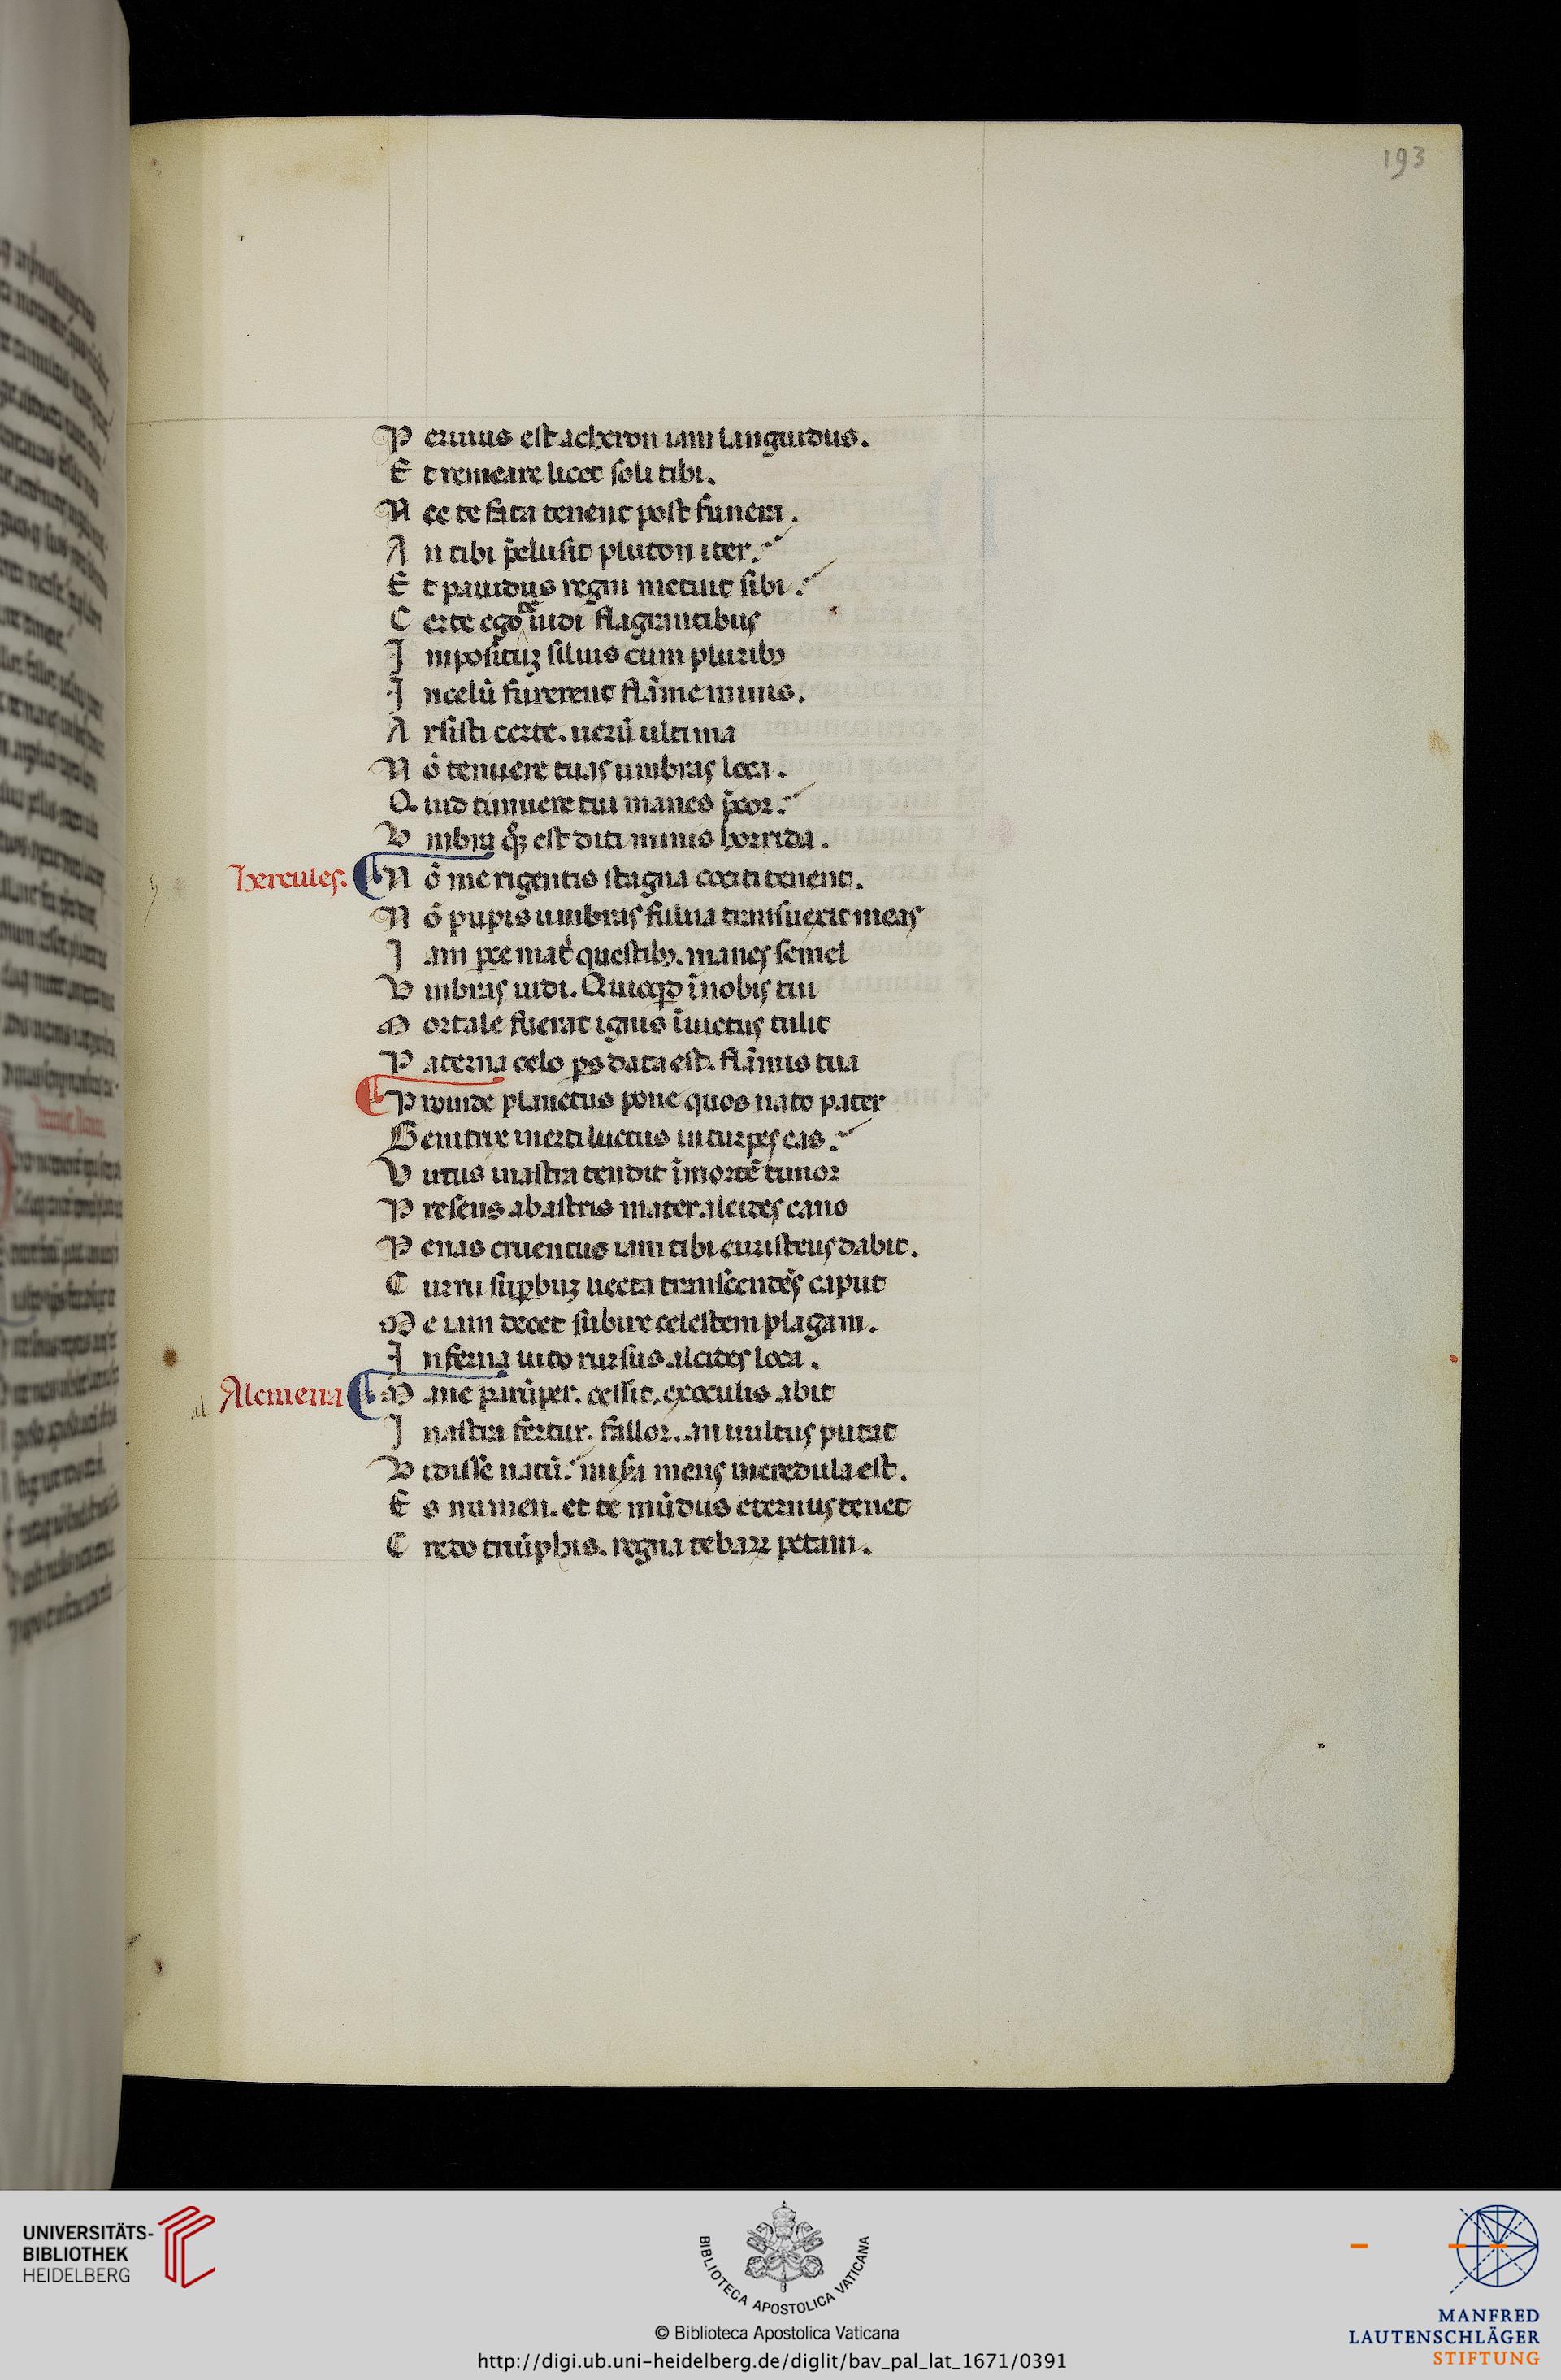 193
P eruius est acheron iam languidus.
E t remeare licet soli tibi.
N ec te fata tenent post funera.
A n tibi p̄clusit pluton iter.
E t pauidus regni metuit sibi.
C erte ego te uidi flagrantibus
I mposituʒ siluis cum pluribꝫ
I n celū furerent flāme minus.
A rsisti certe. uerū ultima
N ō tenuere tuas umbras loca.
Q uid timuere tui manes p̄cor.
V mbra qͦꝫ est diti nimis horrida.
Hercules. N ō me rigentis stagna cociti tenent.
N ō pupis umbras fulua transuexit meas
I am ꝑce mat̄ questibꝫ. manes semel
V mbras uidi. Quicqͥd ī nobis tui
M ortale fuerat ignis īuictus tulit
P aterna celo ꝑs data est. flāmis tua
P roinde planctus pone quos nato pater
G enitrix inerti luctus in turpes eas.
V irtus in astra tendit ī mortē timor
P resens ab astris mater alcides cano
P enas cruentus iam tibi euristeus dabit.
C urru suꝑbuʒ uecta transcendēs caput
M e iam decet subire celestem plagam.
I nferna uito rursus alcides loca.
al
Alcmena M ane parūper. cessit. ex oculis abit
I n astra fertur. fallor. an uultus putat
V idisse natū. misera mens incredula est.
E s numen. et te mūdus eternus tenet
C redo triūphis. regna tebaꝝ petam.
UNIVERSITÄTS-
BIBLIOTHEK
HEIDELBERG
BIBLIOTECA APOSTOLICA VATICANA
© Biblioteca Apostolica Vaticana
http://digi.ub.uni-heidelberg.de/diglit/bav_pal_lat_1671/0391
MANFRED
LAUTENSCHLÄGER
STIFTUNG